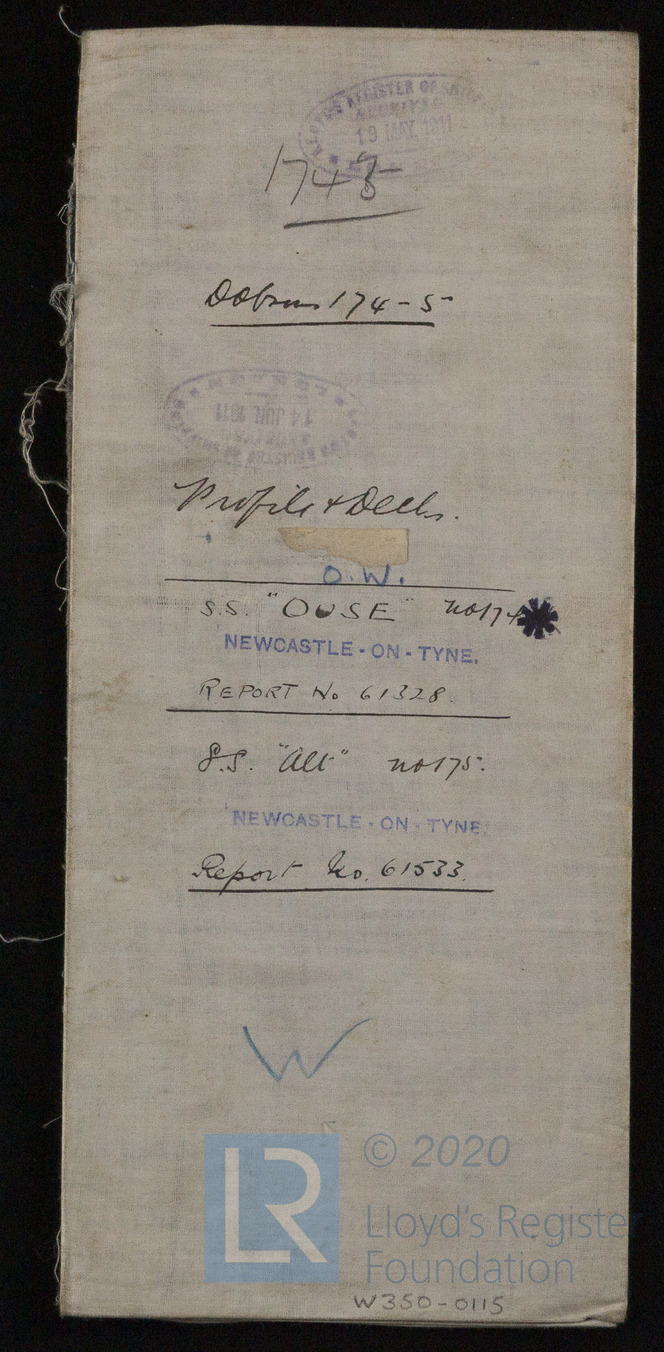 LLOYD'S REGISTER OF SHIPPING
19 MAY. 1911
Dobson 174-5
LONDON
14 JUN. 1911
LLOYD'S REGISTER OF SHIPPING
Profile & Decks.
O.W.
S.S. "OUSE" No 174
NEWCASTLE-ON-TYNE.
REPORT No 61328.
S.S. "Alt" No 175.
NEWCASTLE-ON-TYNE.
Report No. 61533.
W
LR
© 2020
Lloyd's Register
Foundation
W350-0115